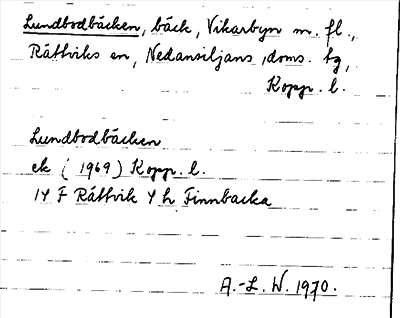 Lundbodbäcken, bäck, Vikarbyn m. fl.,
Rättviks en, Nedansiljans doms. tg,
Kopp. l.
Lundbodbäcken
ek (1969) Kopp. l.
14 F Rättvik 4 h Finnbacka
A.-L. W. 1970.